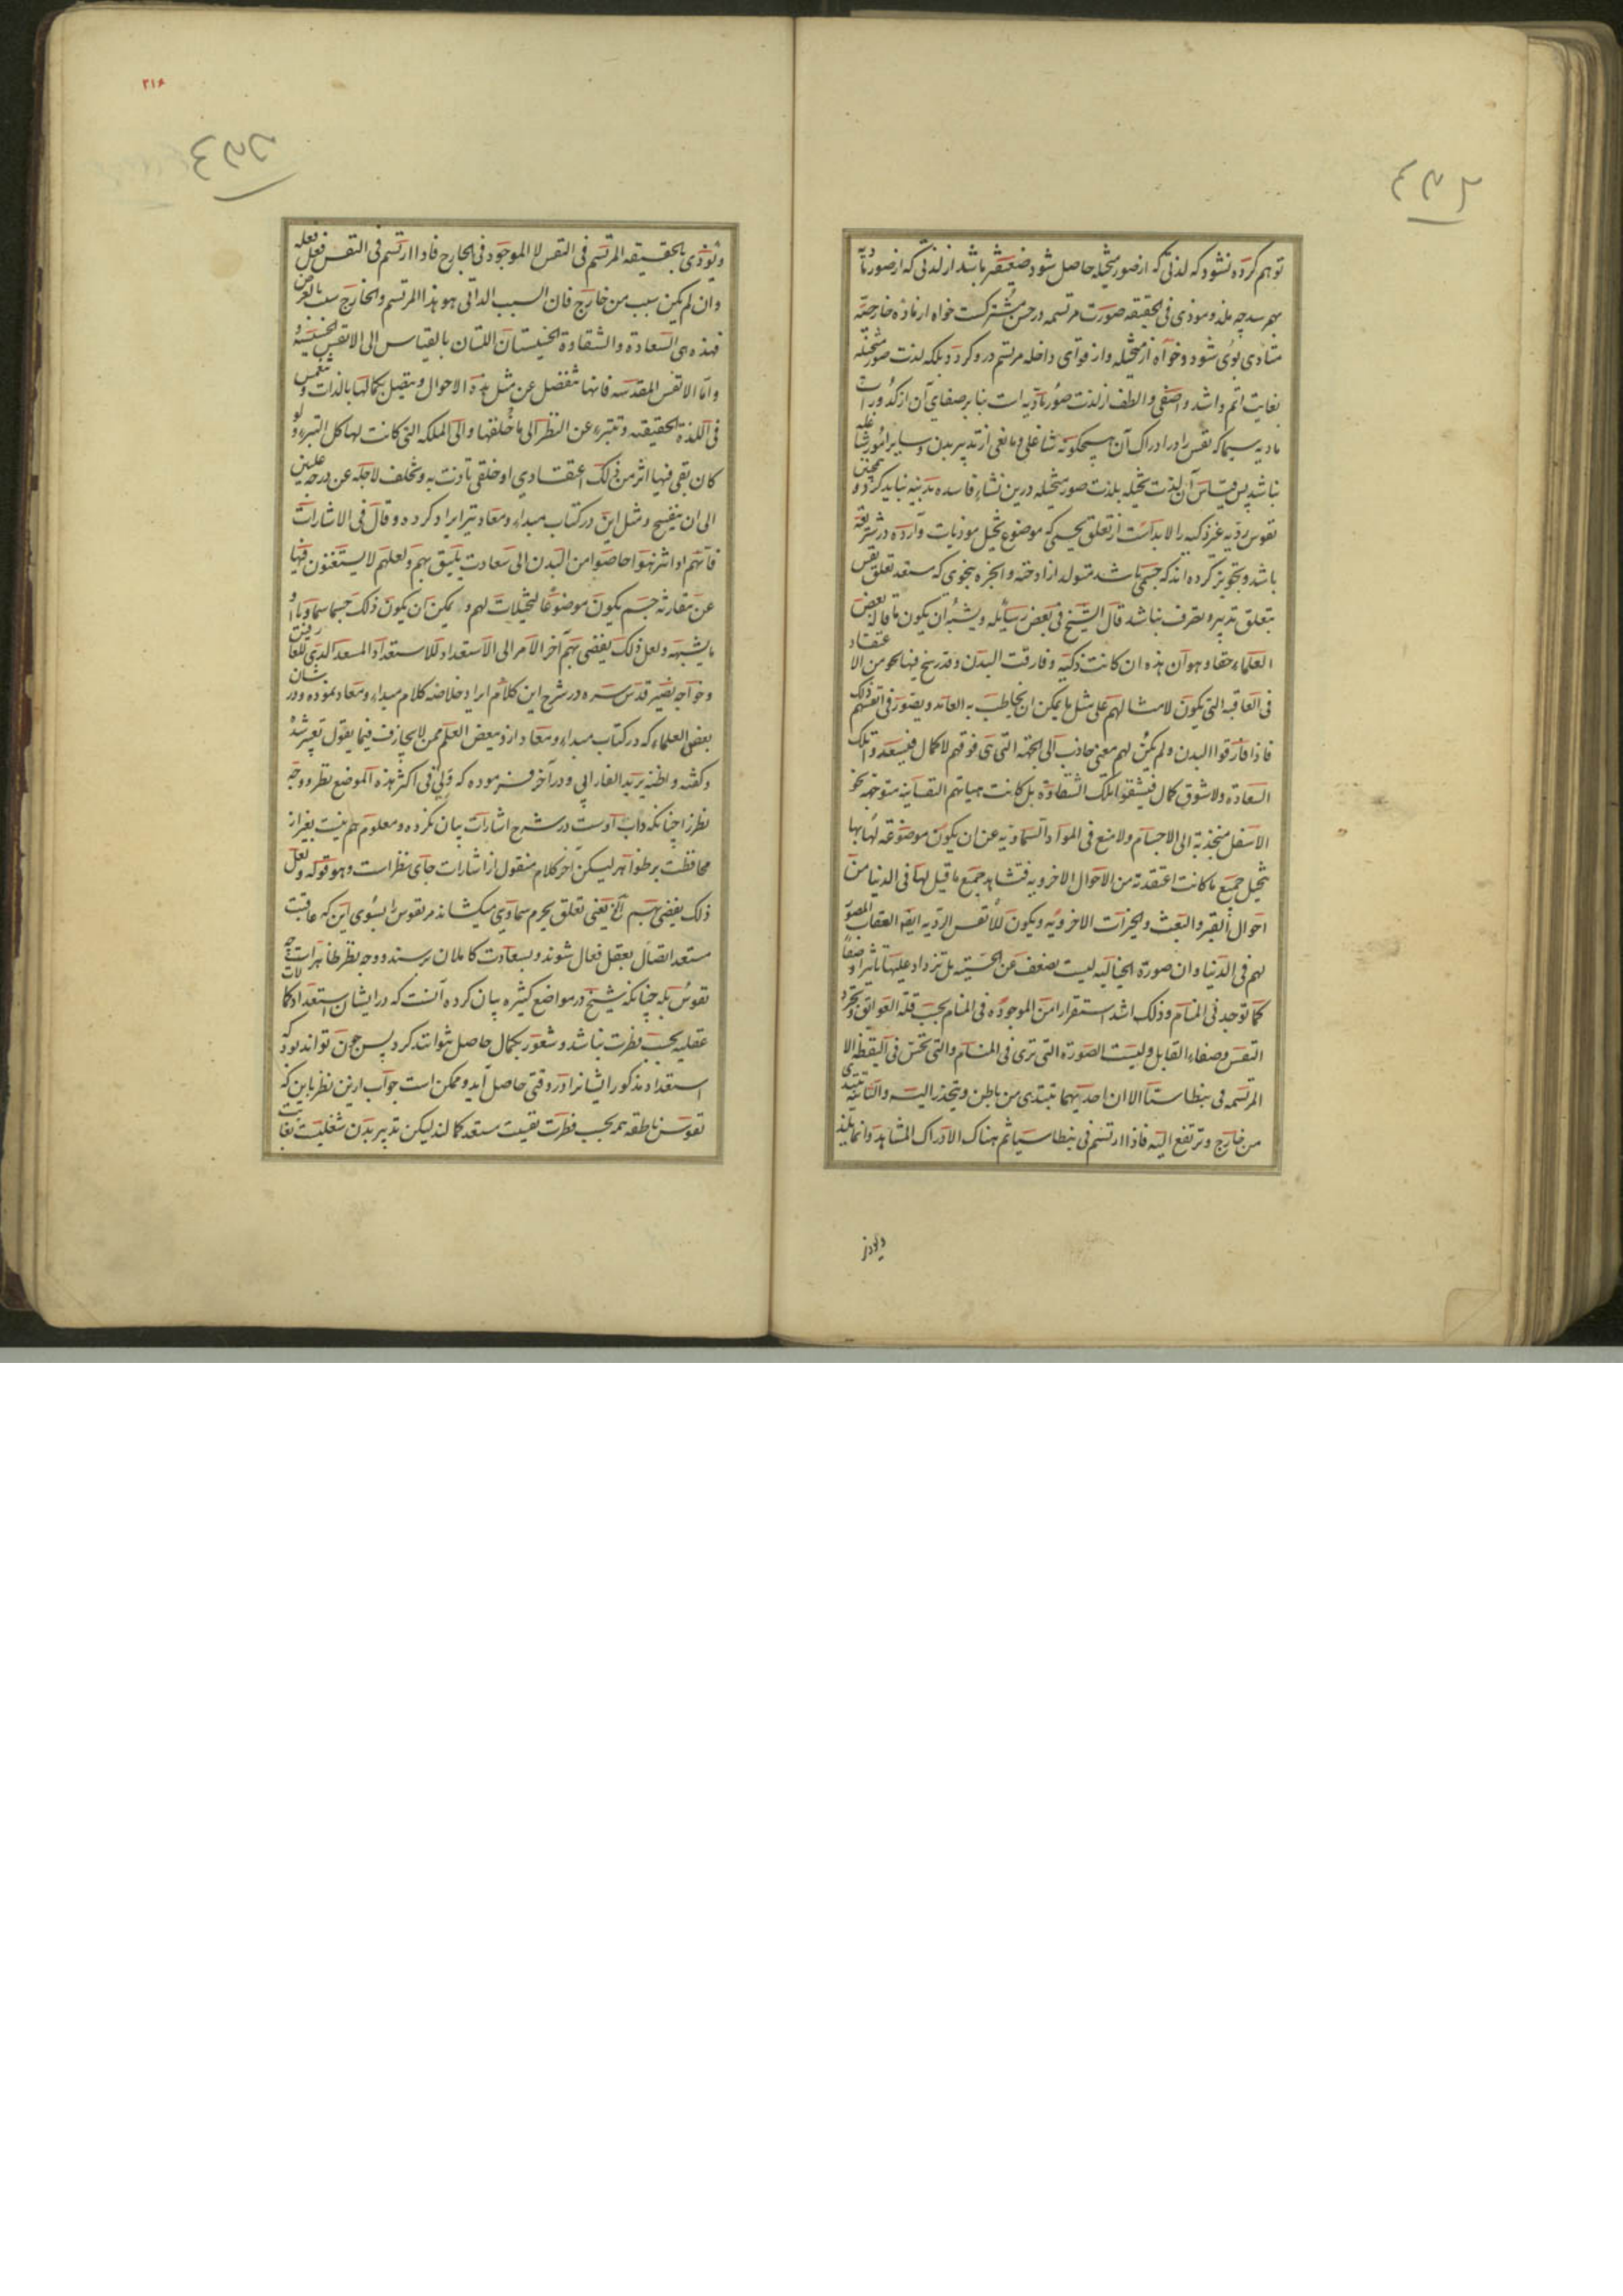 توهم کرده نشود که لذتی که از صور متخیله حاصل شود ضعیفتر باشد از لذتی که از صور مادیه
بهم رسد چه ملذ و موذی فی الحقیقه صورت مرتسمه در حس مشترکست خواه از ماده خارجیه
متادی بوی شود و خواه از متخیله و از قوای داخله مرتسم درو کردد بلکه لذت صور متخیله
بغایت اتم و اشد و اصفی و الطف از لذت صور مادیه است بنا بر صفای آن از کدورات
مادیه سیما که نفس را در ادراک آن هیچکونه شاغلی و مانعی از تدبیر بدن و سایر امور شاغله
نباشد پس قیاس آن لذت تخیله بلذت صور متخیله درین نشاء فاسده بدنیه نباید کرد و همچنین
نفوس ردیه غیر ذکیه را لا بد است از تعلق بجسمی که موضوع تخیل موذیات وارده در شریعه
باشد و تجویز کرده اند که جسمی باشد متولد از ادخنه و ابخره بنحوی که مستعد تعلق نفس
بتعلق تدبیر و تصرف نباشد قال الشیخ فی بعض رسایله و یشبه ان یکون ما قاله بعض
العلماء حقا و هو ان هذه ان کانت ذکیه و فارقت البدن و قد رسخ فیها نحو من الاعتقاد
فی العاقبه التی یکون لامثالهم علی مثل ما یمکن ان یخاطب به العامه و یصور فی انفسهم ذلک
فاذا فارقوا البدن و لم یکن لهم معنی جاذب الی الجهه التی هی فوقهم لا کمال فیسعد و اتلک
السعاده و لا شوق کمال فیشقوا تلک الشقاوه بل کانت هیاتهم النفسانیه متوجهه نحو
الاسفل منجذبه الی الاجسام و لا منع فی المواد السماویه عن ان یکون موضوعه لها بها
یتخیل جمیع ما کانت اعتقدته من الاحوال الاخرویه فتشاهد جمیع ما قیل لها فی الدنیا من
احوال القبر و البعث و الخیرات الاخرویه و یکون للانفس الردیه ایضا العقاب المصور
لهم فی الدنیا و ان صوره الخیالیه لیست بضعف عن الحسیه بل تزداد علیها تاثیرا و صفاء
کما توجد فی المنام و ذلک اشد استقرارا من الموجوده فی المنام بحسب قله العوائق و تجرد
النفس و صفاء القابل و لیست الصوره التی تری فی المنام و التی تحس فی الیقظه الا
المرتسمه فی بنطاسیا الا ان احدیهما تبتدی من باطن و ینحدر الیه و الثانیه تبتدی
من خارج و ترتفع الیه فاذا ارتسم فی بنطاسیا ثم هناک الادراک المشاهد و انما یلذ
و یوذی
۲۱۶
و توذی بالحقیقه المرتسم فی النفس لا الموجود فی الخارج فاذا ارتسم فی النفس فعل فعله
و ان لم یکن سبب من خارج فان السبب الذاتی هو هذا المرتسم و الخارج سبب بالعرض
فهذه هی السعاده و الشقاوه الخسیستان اللتان بالقیاس الی الانفس الخسیسه و
و اما الانفس المقدسه فانها تنفصل عن مثل هذه الاحوال و یتصل بکمالها بالذات و تنغمس
فی اللذه الحقیقیه و تتبرء عن النظر الی ما خلفها و الی الملکه التی کانت لها کل التبرء و لو
کان بقی فیها اثر من ذلک اعتقادی او خلقی تاذت به و تخلف لاجله عن درجه علیین
الی ان ینفسخ و مثل این در کتاب مبداء و معاد نیز ایراد کرده و قال فی الاشارات
فانهم اذا تنزهوا خلصوا من البدن الی سعادت یلیق بهم و لعلهم لا یستغنون فیها
عن مقارنه جسم یکون موضوعا لتخیلات لهم و لا یمکن ان یکون ذلک جسما سماویا او
ما یشبهه و لعل ذلک یفضی بهم آخر الامر الی الاستعداد للاستعداد المسعد الذی للعارفین
و خواجه نصیر قدس سره در شرح این کلام ایراد خلاصه کلام مبداء و معاد نموده و در شان
بعض العلماء که در کتاب مبداء و معاد ازو ببعض العلم ممن لا یجازف فیما یقول تعبیر شده
و کفته و اظنه یرید الفارابی و در آخر فرموده که ولی فی اکثر هذه المواضع نظر و وجه
نظر را چنانکه داب اوست در شرح اشارات بیان نکرده و معلوم هم نیست بغیر از
محافظت بر ظواهر لیکن آخر کلام منقول از اشارات جای نظر است و هو قوله و لعل
ذلک یفضی بهم الخ یعنی تعلق بجرم سماوی میکشاند مر نفوس را بسوی این که عاقبت
مستعد اتصال بعقل فعال شوند و بسعادت کاملان برسند و وجه نظر ظاهر است چه
نفوس بله چنانکه شیخ در مواضع کثیره بیان کرده آنست که در ایشان استعداد کمالات
عقلیه بحسب فطرت نباشد و شعور بکمال حاصل نتوانند کرد پس چون تواند بود که
استعداد مذکور ایشانرا در وقتی حاصل آید و ممکن است جواب ازین نظر باین که
نفوس ناطقه همه بحسب فطرت نفسیت مستعد کمالند لیکن تدبیر بدن شغلیست بغایت